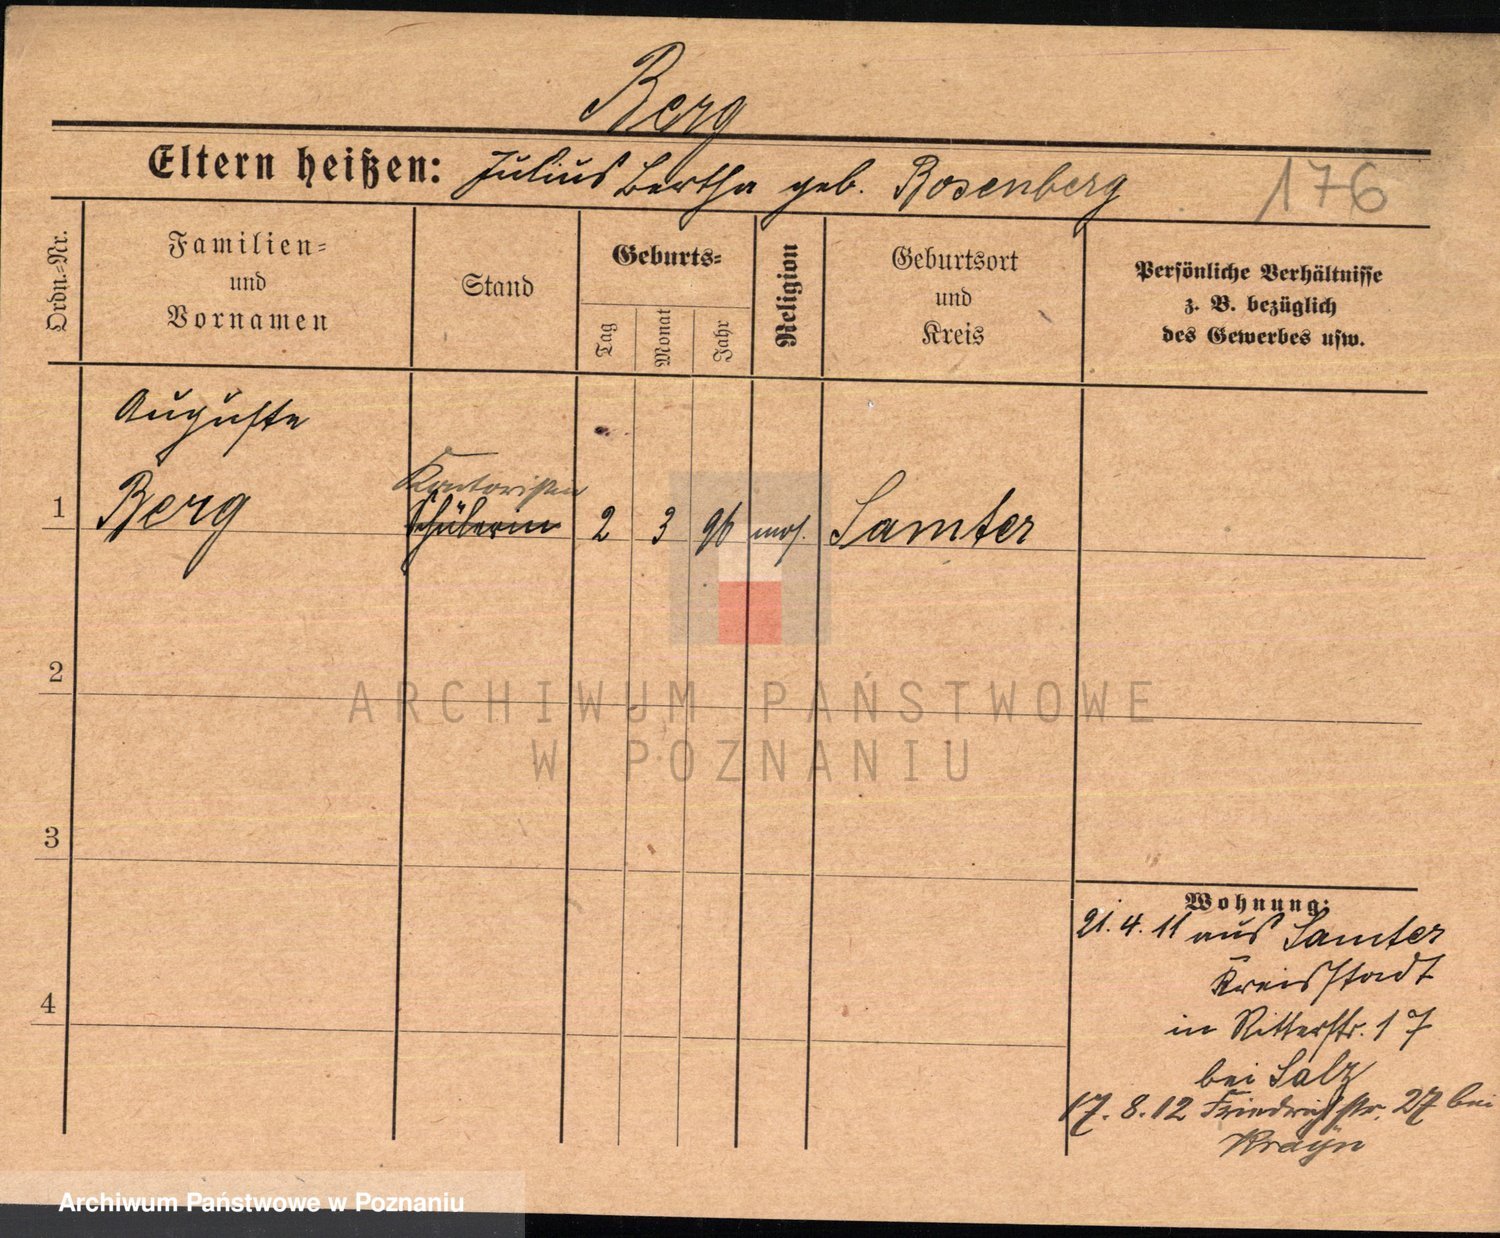 Berg
Eltern heißen: Julius Bertha geb. Rosenberg
176
Ordn.=Nr.
Familien=
und
Vornamen
Stand
Geburts=
Tag
Monat
Jahr
Religion
Geburtsort
und
Kreis
Persönliche Verhältnisse
z. B. bezüglich
des Gewerbes usw.
Auguste
Kontoristin
1 Berg Schülerin 2 3 96 mos. Samter
2
ARCHIWUM PAŃSTWOWE
W POZNANIU
3
4
Wohnung:
21. 4. 11 aus Samter
Kreisstadt
in Ritterstr. 17
bei Salz
17. 8. 12 Friedrichstr. 27 bei
Krayn
Archiwum Państwowe w Poznaniu